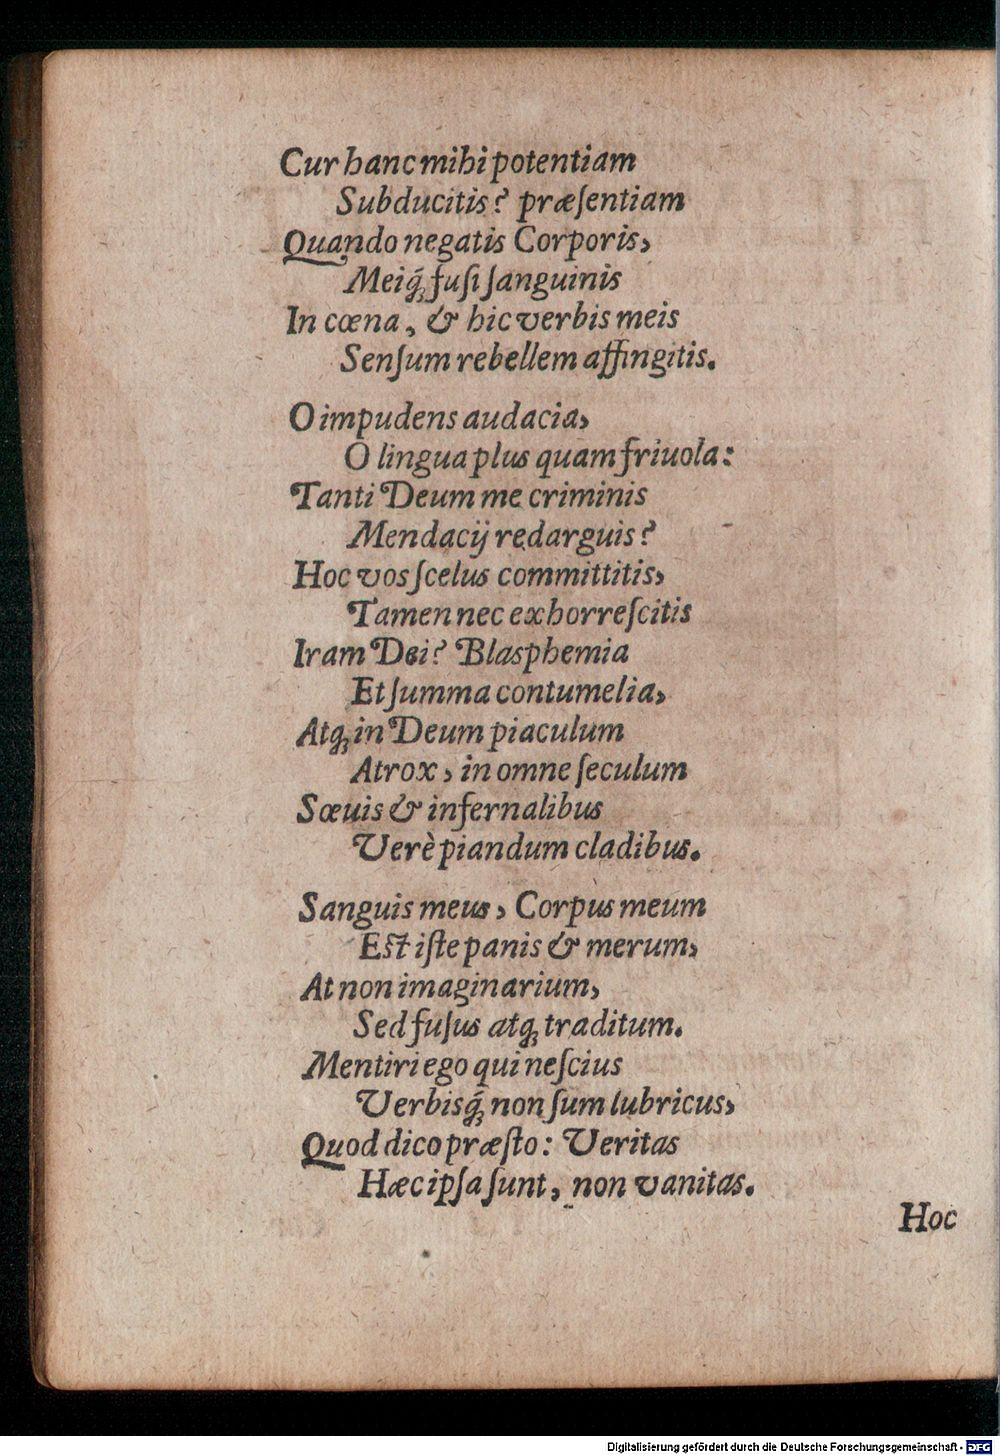 Cur hanc mihi potentiam
Subducitis? præſentiam
Quando negatis Corporis,
Meiq́; fuſi ſanguinis
In cœna, & hic verbis meis
Senſum rebellem affingitis.
O impudens audacia,
O lingua plus quam friuola:
Tanti Deum me criminis
Mendacij redarguis?
Hoc vos ſcelus committitis,
Tamen nec exhorreſcitis
Iram Dei? Blasphemia
Et ſumma contumelia,
Atq; in Deum piaculum
Atrox, in omne ſeculum
Sœuis & infernalibus
Verè piandum cladibus.
Sanguis meus, Corpus meum
Eſt iſte panis & merum,
At non imaginarium,
Sed fuſus atq; traditum.
Mentiri ego qui neſcius
Verbisq́; non ſum lubricus,
Quod dico præſto: Veritas
Hæc ipſa ſunt, non vanitas.
Hoc
Digitalisierung gefördert durch die Deutsche Forschungsgemeinschaft - DFG